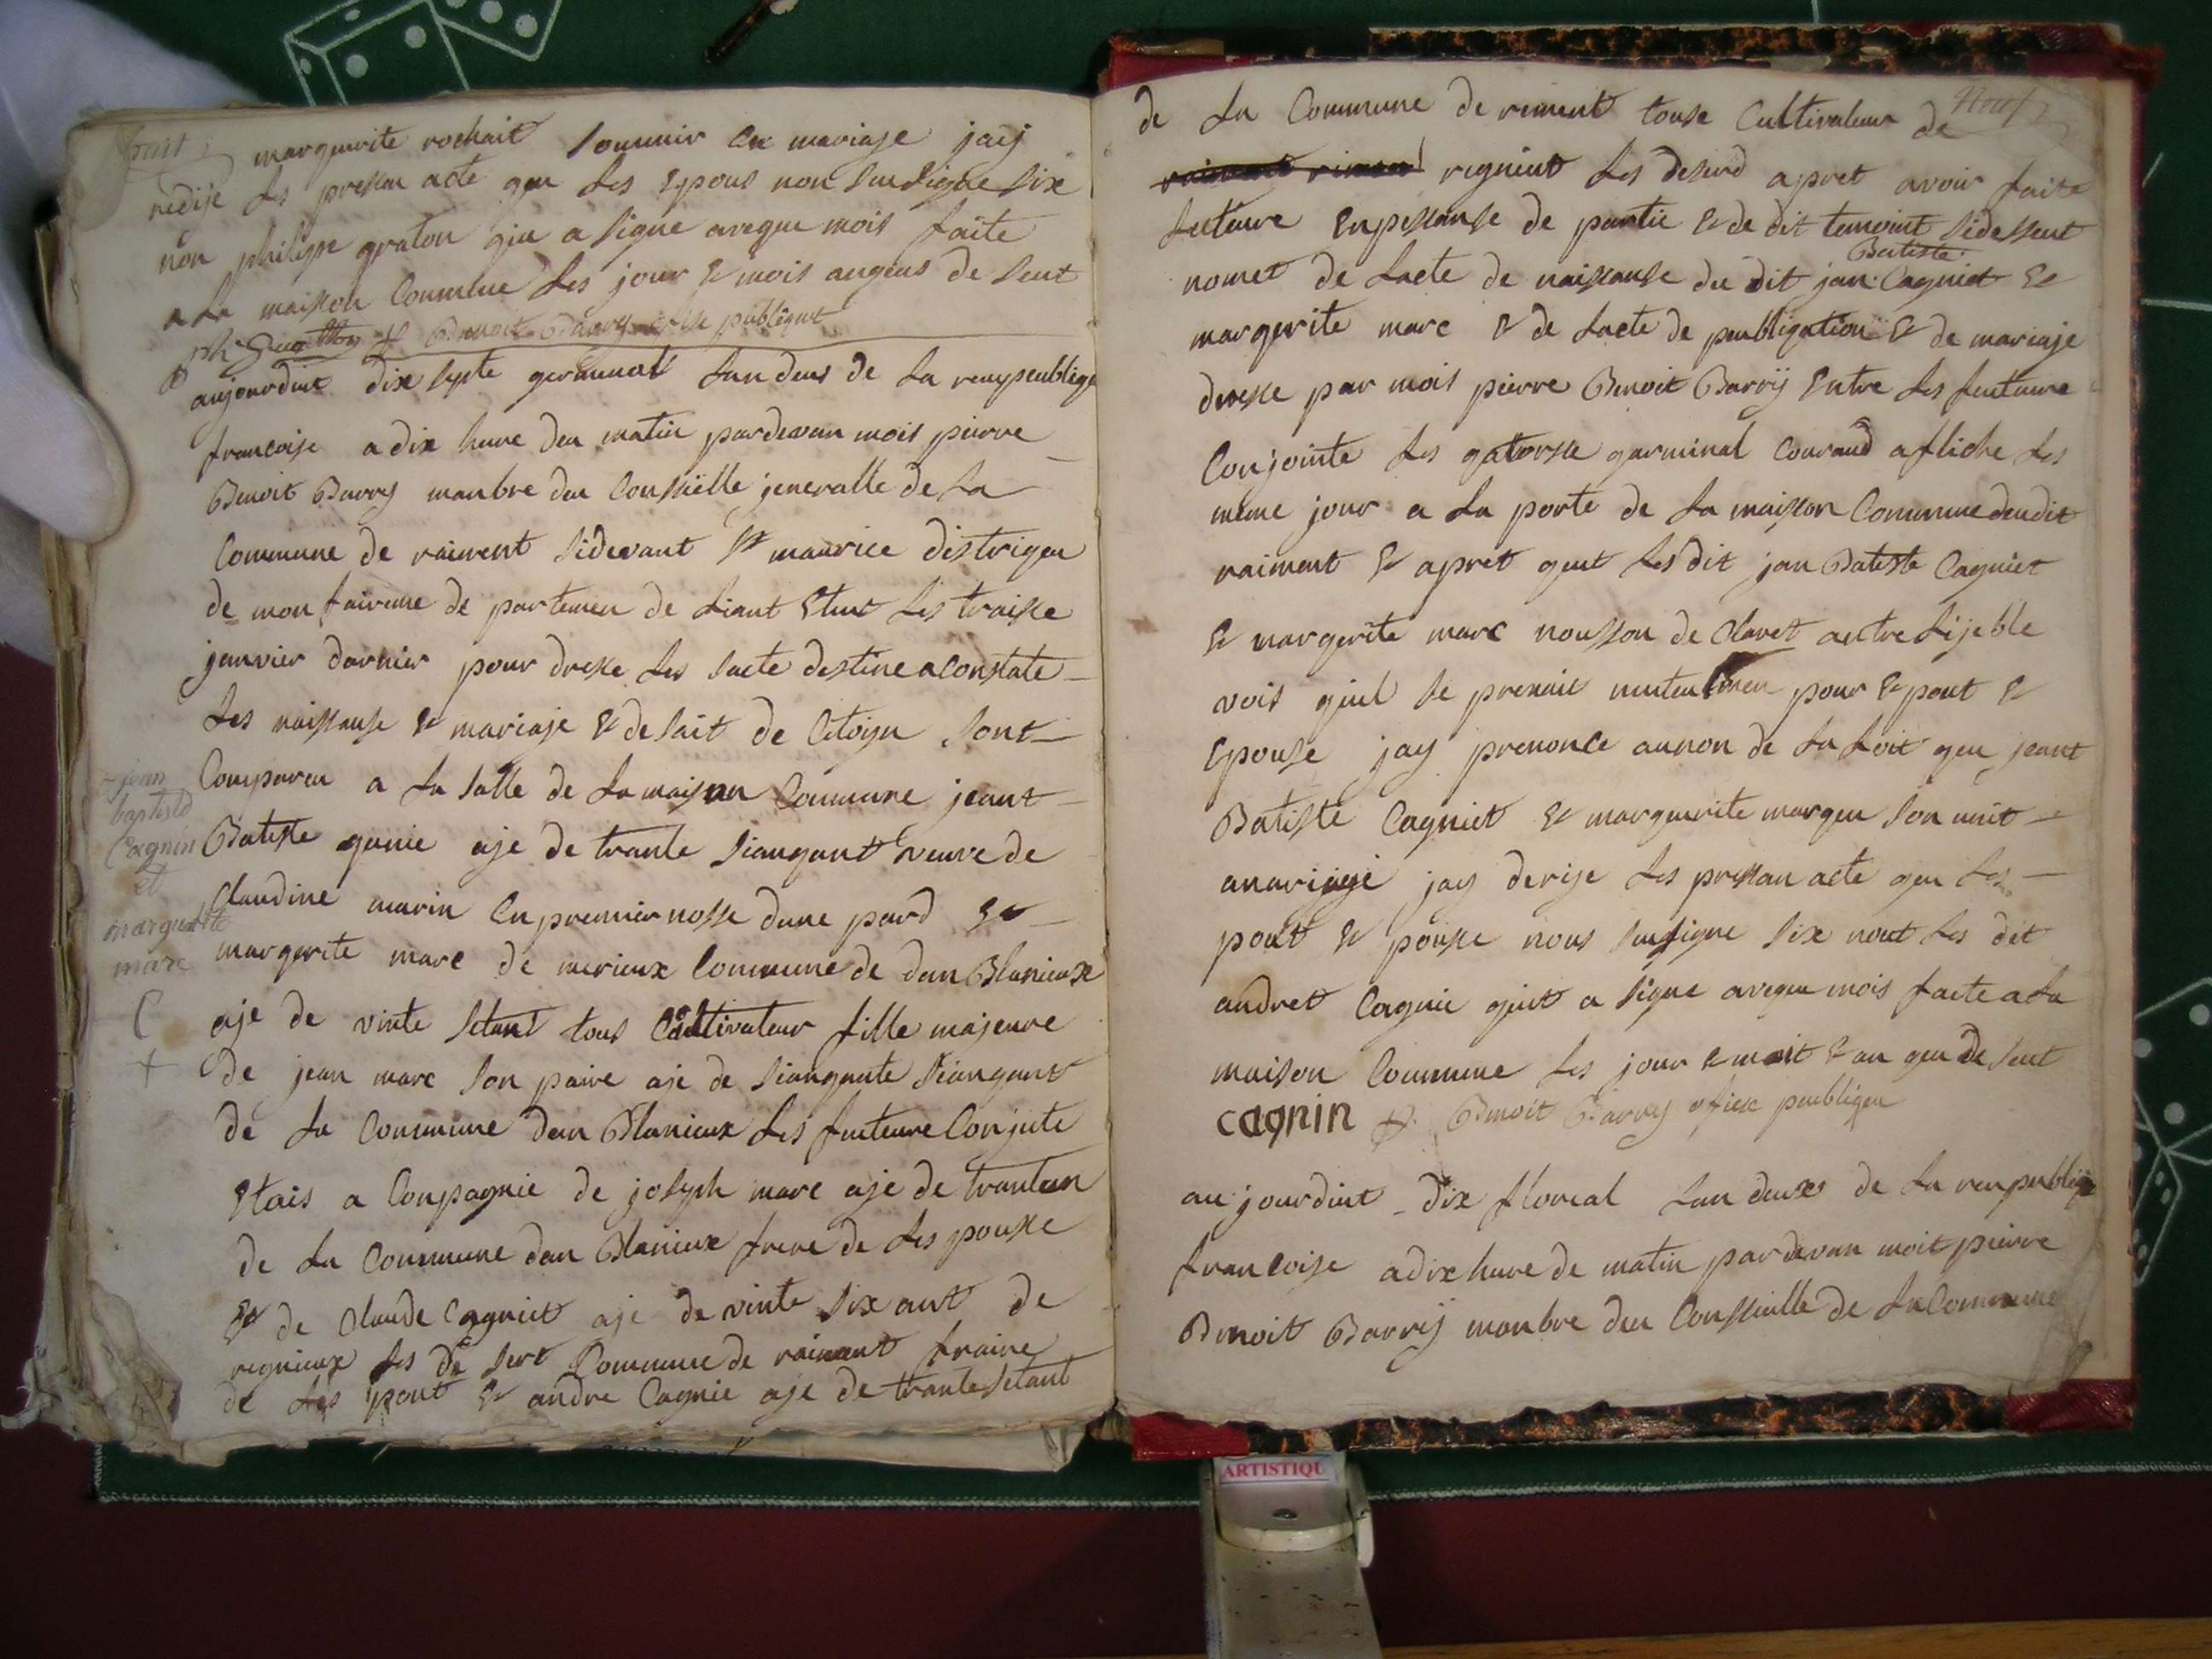 huit
marguerite rochait sonunir en mariaje jaij
redije les pressan acte que les Epous non sus signe six
non philipe graton qiu a signe aveque mois faite
a La maison Commune Les jour & mois anqeus de seut
ph Benoit Barry publique
aujourduit dix septe germinal Lan deus de La reupeublique
francoise a dix hure deu matin pardevan mois pierre
Benoit Barry manbre deu Conseille jeneralle de La
Commune de raiment sidevant St maurice distrigeu
de mon fairme de partemen de Liant Elut Les traisse
janvier darnier pour dresse Les sacte destine a Constate
Les naissanse & mariaje & desait de Citoyen sont
Compareu a La salle de La maison Commune jeant
Batisteganie aje de trante siangant veuve de
Claudine marin en premier nosse dune pard &
margerite marc de merieux Commune de dan Blanieux
aje de vinte setant tous Cultivateur fille majeure
de jean marc son paire aje de siangante siangant
de La Commune dan Blanieux Les futeure Conjute
Etais a Conpagnie de joseph marc aje de trantean
de La Commune dan Blanieux frere de Les pousse
& de Claude Cagniet aje de vinte six ant de
regnieux Les de sert Commune de raimant fraire
de Les pout & andre Cagnie aje de trante setant
jean
baptiste
Cagnin
et
marguerite
marc
C
+
neuf
de La Commune de riment touse Cultivateur de
regnieut Les desird apret avoir faite
Lecteure Enpressanse de partie & de dit temoint sidesseut
Batiste
nomet de Lacte de naissanse du dit jan Cagniet &
margerite marc & de Lacte de peubligation & de mariaje
dresse par mois pierre Benoit Barrÿ Entre Les feuteure
Conjointe Les gatorsse garminal Courand afliche Les
meme jour a La porte de La maison Commune deudit
raiment & apret geut Les dit jan Batiste Cagniet
& margerite marc nousson de Claret autre sijeble
vois qiul se prenait muteulmen pour & pout &
Epouse jay prenonce aunon de La Loit geu jeant
Batiste Cagniet & marguerite margeu son unit
anariaje jay derije Les pressan acte geu Les
pout & pousse nous susigne six nout Les dit
andret Cagnie qiut a signe aveque mois faite a La
maison Commune Les jour & moit & an geu de seut
cagnin P. Benoit Barry ofise peubliqeu
aujourduit dix floreal Lan deuxe de La reupeublique
francoise a dix hure de matin pardevan moit pierre
Benoit Barrÿ manbre deu Conssielle de La Commune
ARTISTIQU